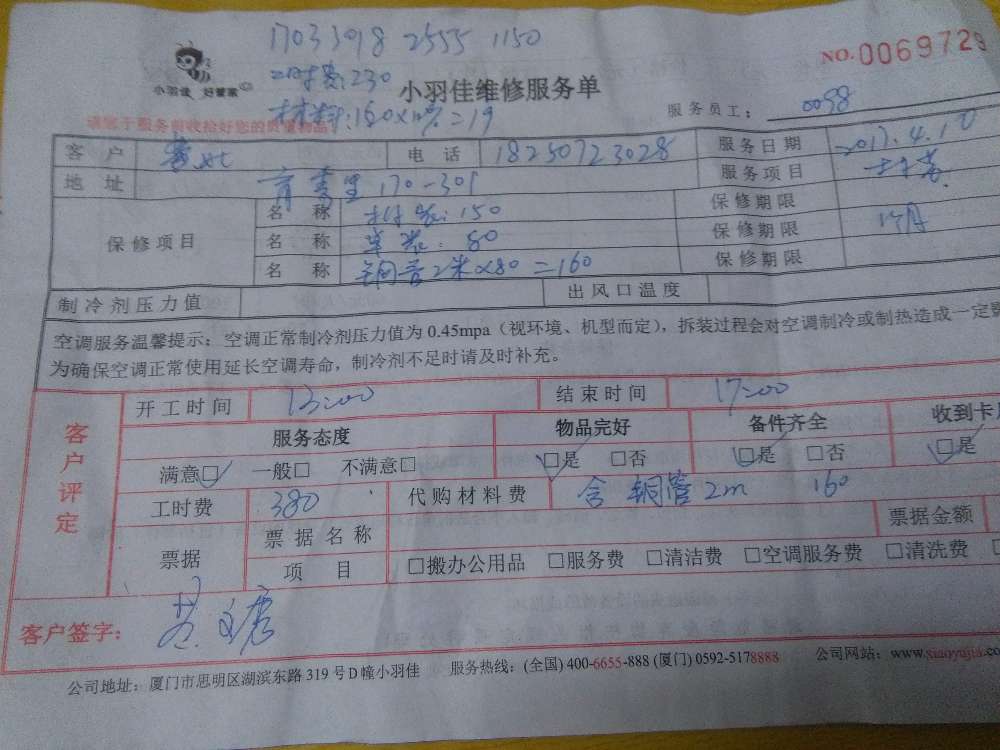 17033918 2555 1150
NO.0069729
工时费:230
小羽佳 好管家
小羽佳维修服务单
材料:160×12%=19
服务员工: 0098
请您于服务前收拾好您的贵重物品
客户 电话 18250723028 服务日期 2017.4.10
地址 170-301 服务项目
保修项目 名称 :150 保修期限
名称 :80 保修期限
名称 铜管2米×80=160 保修期限
制冷剂压力值 出风口温度
空调服务温馨提示：空调正常制冷剂压力值为 0.45mpa（视环境、机型而定），拆装过程会对空调制冷或制热造成一定影
为确保空调正常使用延长空调寿命，制冷剂不足时请及时补充。
客户评定
开工时间 13:00 结束时间 17:00
服务态度 物品完好 备件齐全 收到卡
满意□ 一般□ 不满意□ □是 □否 □是 □否 □是
工时费 380 代购材料费 含 铜管2m 160
票据 票据名称 票据金额
项目 □搬办公用品 □服务费 □清洁费 □空调服务费 □清洗费
客户签字：
公司地址：厦门市思明区湖滨东路 319 号 D 幢小羽佳 服务热线：(全国) 400-6655-888 (厦门) 0592-5178888 公司网站：www.xiaoyujia.co